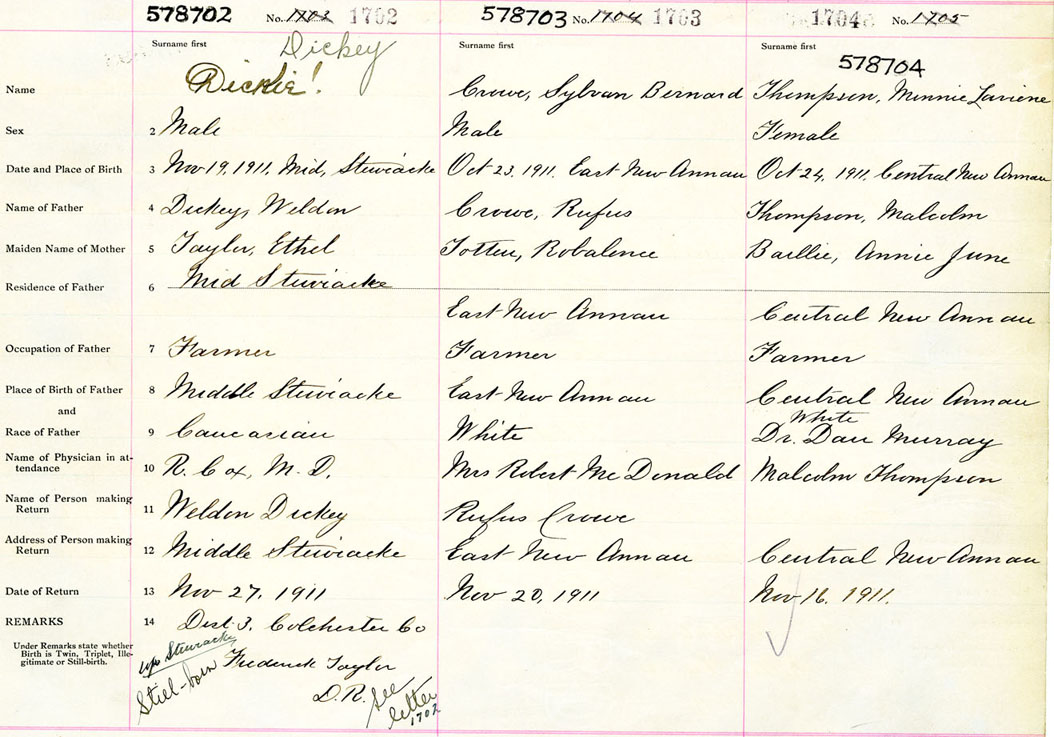 578702 No. 1703 1702 578703 No. 1704 1703 1704 No. 1705
Surname first Dickey Surname first Surname first
578704
Name Dickie! Crowe, Sylvan Bernard Thompson, Minnie Laviene
Sex 2 Male Male Female
Date and Place of Birth 3 Nov 19, 1911, Mid, Stewiacke Oct 23, 1911. East New Annan Oct 24, 1911. Central New Annan
Name of Father 4 Dickey, Weldon Crowe, Rufus Thompson, Malcolm
Maiden Name of Mother 5 Taylor, Ethel Totten, Robalence Baillie, Annie June
Residence of Father 6 Mid Stewiacke
East New Annan Central New Annan
Occupation of Father 7 Farmer Farmer Farmer
Place of Birth of Father 8 Middle Stewiacke East New Annan Central New Annan
and White
Race of Father 9 Caucasian White Dr. Dan Murray
Name of Physician in at-
tendance 10 R. Cox, M. D. Mrs Robert McDonald Malcolm Thompson
Name of Person making
Return 11 Weldon Dickey Rufus Crowe
Address of Person making
Return 12 Middle Stewiacke East New Annan Central New Annan
Date of Return 13 Nov 27, 1911 Nov 20, 1911 Nov 16. 1911.
REMARKS 14 Dist 3. Colchester Co
Under Remarks state whether
Birth is Twin, Triplet, Ille-
gitimate or Still-birth.
up Stewiacke
Frederick Taylor
Still-born D.R. See
letter
1702